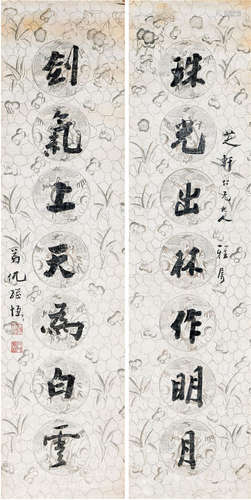 珠光出林作明月
芝軒仁兄大人雅屬
劍氣上天為白雲
弟仇繼恆